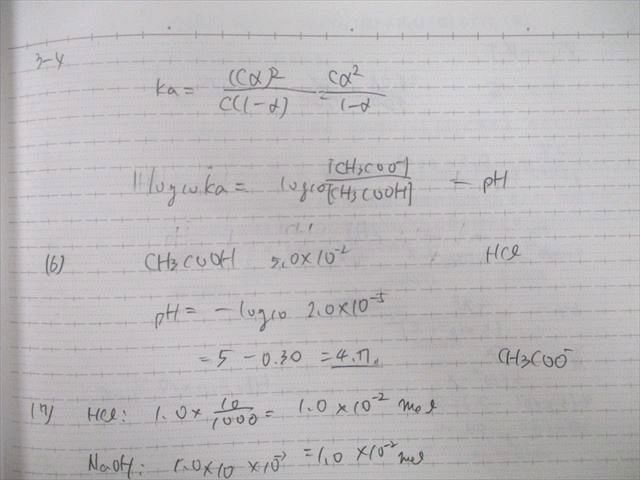 3-4
Ka = (Cα)²/C(1-α) = Cα²/1-α
log₁₀Ka = log₁₀ [CH₃COO⁻]/[CH₃COOH] - pH
(6) CH₃COOH 5.0×10⁻² HCl
pH = -log₁₀ 2.0×10⁻⁵
= 5 - 0.30 = 4.7. CH₃COO⁻
(7) HCl: 1.0 × 10/1000 = 1.0 × 10⁻² mol
NaOH: 1.0×10 ×10⁻³ = 1.0 ×10⁻² mol